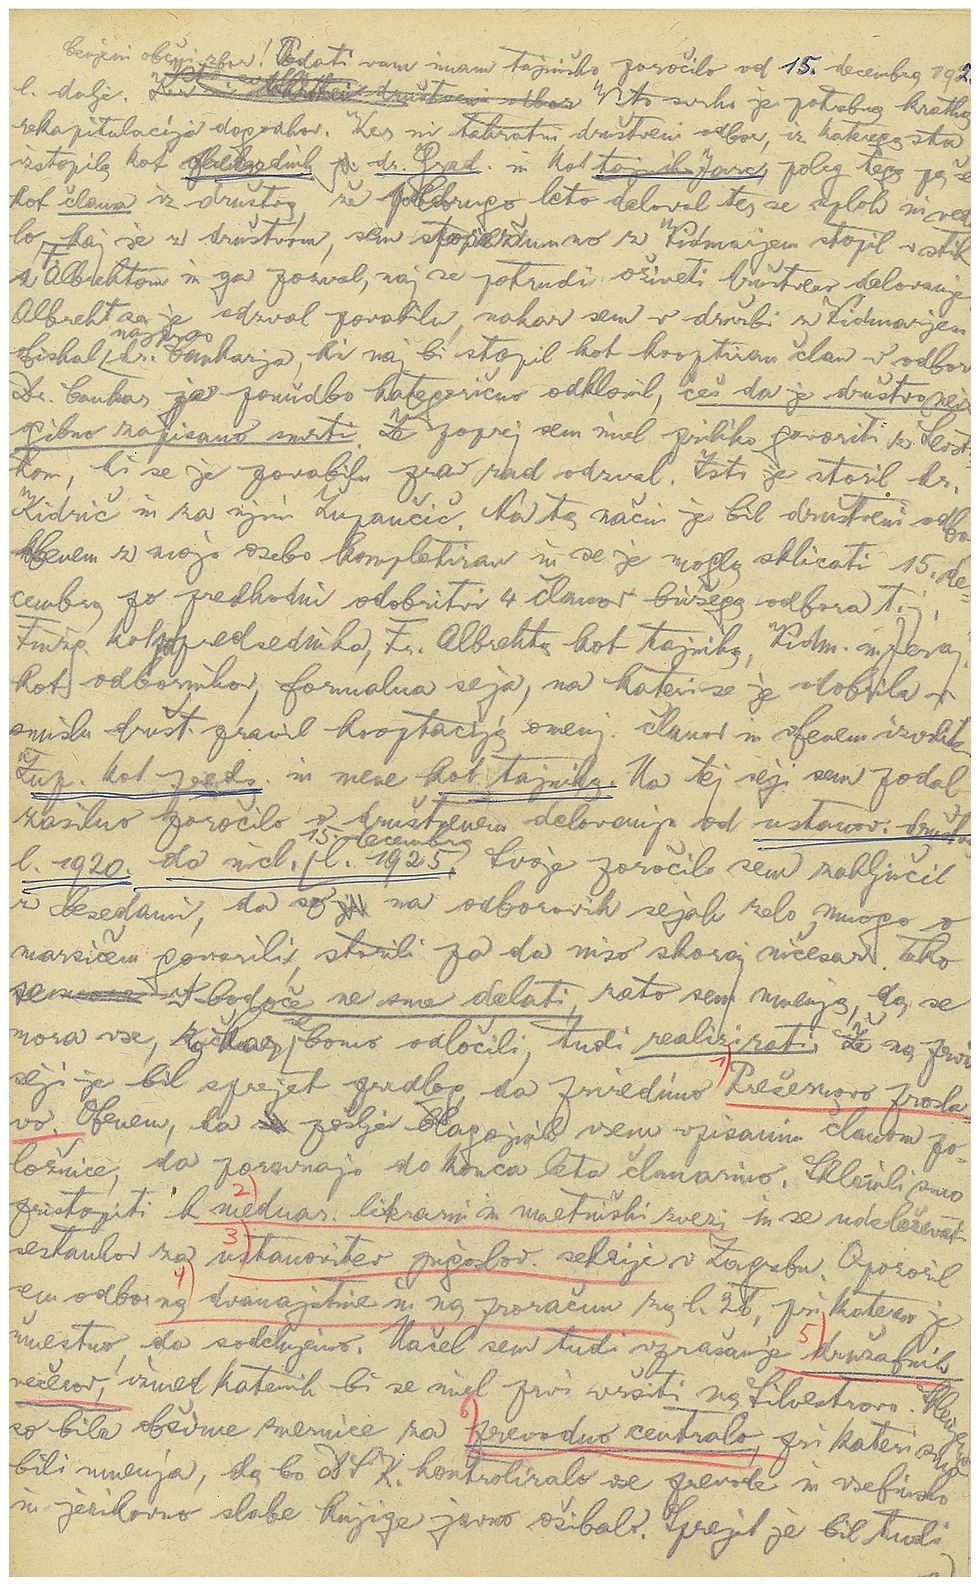 Cenjeni občni zbor! Podati vam imam tajniško poročilo od 15. decembra 192
l. dalje. V to svrho je potrebna kratka
rekapitulacija dogodkov. Ker ni takratni društveni odbor, iz katerega sta
izstopila kot predsednik g. dr. Grad. in kot tajnik Jarc, poleg tega pa še
kot člana iz društva, že poldrugo leto deloval ter se sploh ni vede
lo, kaj je z društvom, sem sporazumno z Vidmarjem stopil v stik
z Fr. Albrehtom in ga pozval, naj se potrudi oživeti društveno delovanje
Albreht se je odzval povabilu, nakar sem v družbi z Vidmarjem
iskal najprvo dr. Cankarja, ki naj bi stopil kot kooptiran član v odbor
Dr. Cankar je ponudbo kategorično odklonil, češ da je društvo neiz
gibno zapisano smrti. Že poprej sem imel priliko govoriti z Lest
kom, ki se je povabilu prav rad odzval. Isto je storil dr.
Kidrič in za njim Župančič. Na ta način je bil društveni odbor
obenem z mojo osebo kompletiran in se je mogla sklicati 15. de-
cembra po predhodni odobritvi 4 članov bivšega odbora t. j.
Finžg. kot podpredsednika, Fr. Albrehta kot tajnika, Vidm. in
kot odbornikov, formalna seja, na kateri se je odobrila v
smislu društ. pravil kooptacija omenj. članov in obenem izvolila
Žup. kot preds. in mene kot tajnika. Na tej seji sem podal
zasilno poročilo o društvenem delovanju od ustanov. društva
l. 1920. do vcl. 15. decembra l. 1925. Svoje poročilo sem zaključil
z besedami, da so na odborovih sejah zelo mnogo o
marsičem govorili, storili pa da niso skoraj ničesar. Tako
se v bodoče ne sme delati, zato sem mnenja, da se
mora vse, za kar se bomo odločili, tudi realizirati. Že na prvi
seji je bil sprejet predlog, da priredimo 1) Prešernovo prosla
vo. Obenem, da pošlje blagajnik vsem vpisanim članom po-
ložnice, da poravnajo do konca leta članarino. Sklenili smo
pristopiti k 2) meduar. literarni in umetniški zvezi in se udeleževati
sestankov za 3) ustanovitev jugoslov. sekcije v Zagrebu. Opozoril
sem odbor na 4) dvanajstine in na proračun za l. 26, pri katerem je
umestno, da sodelujemo. Načel sem tudi vprašanje 5) družabnih
večerov, izmed katerih bi se imel prvi vršiti na Silvestrovo.
so bile obširne smernice za 6) prevodno centralo, pri kateri smo
bili mnenja, da bo DSK. kontroliralo vse prevode in vsebinsko
in jezikovno slabe knjige javno ožibalo. Sprejet je bil tudi